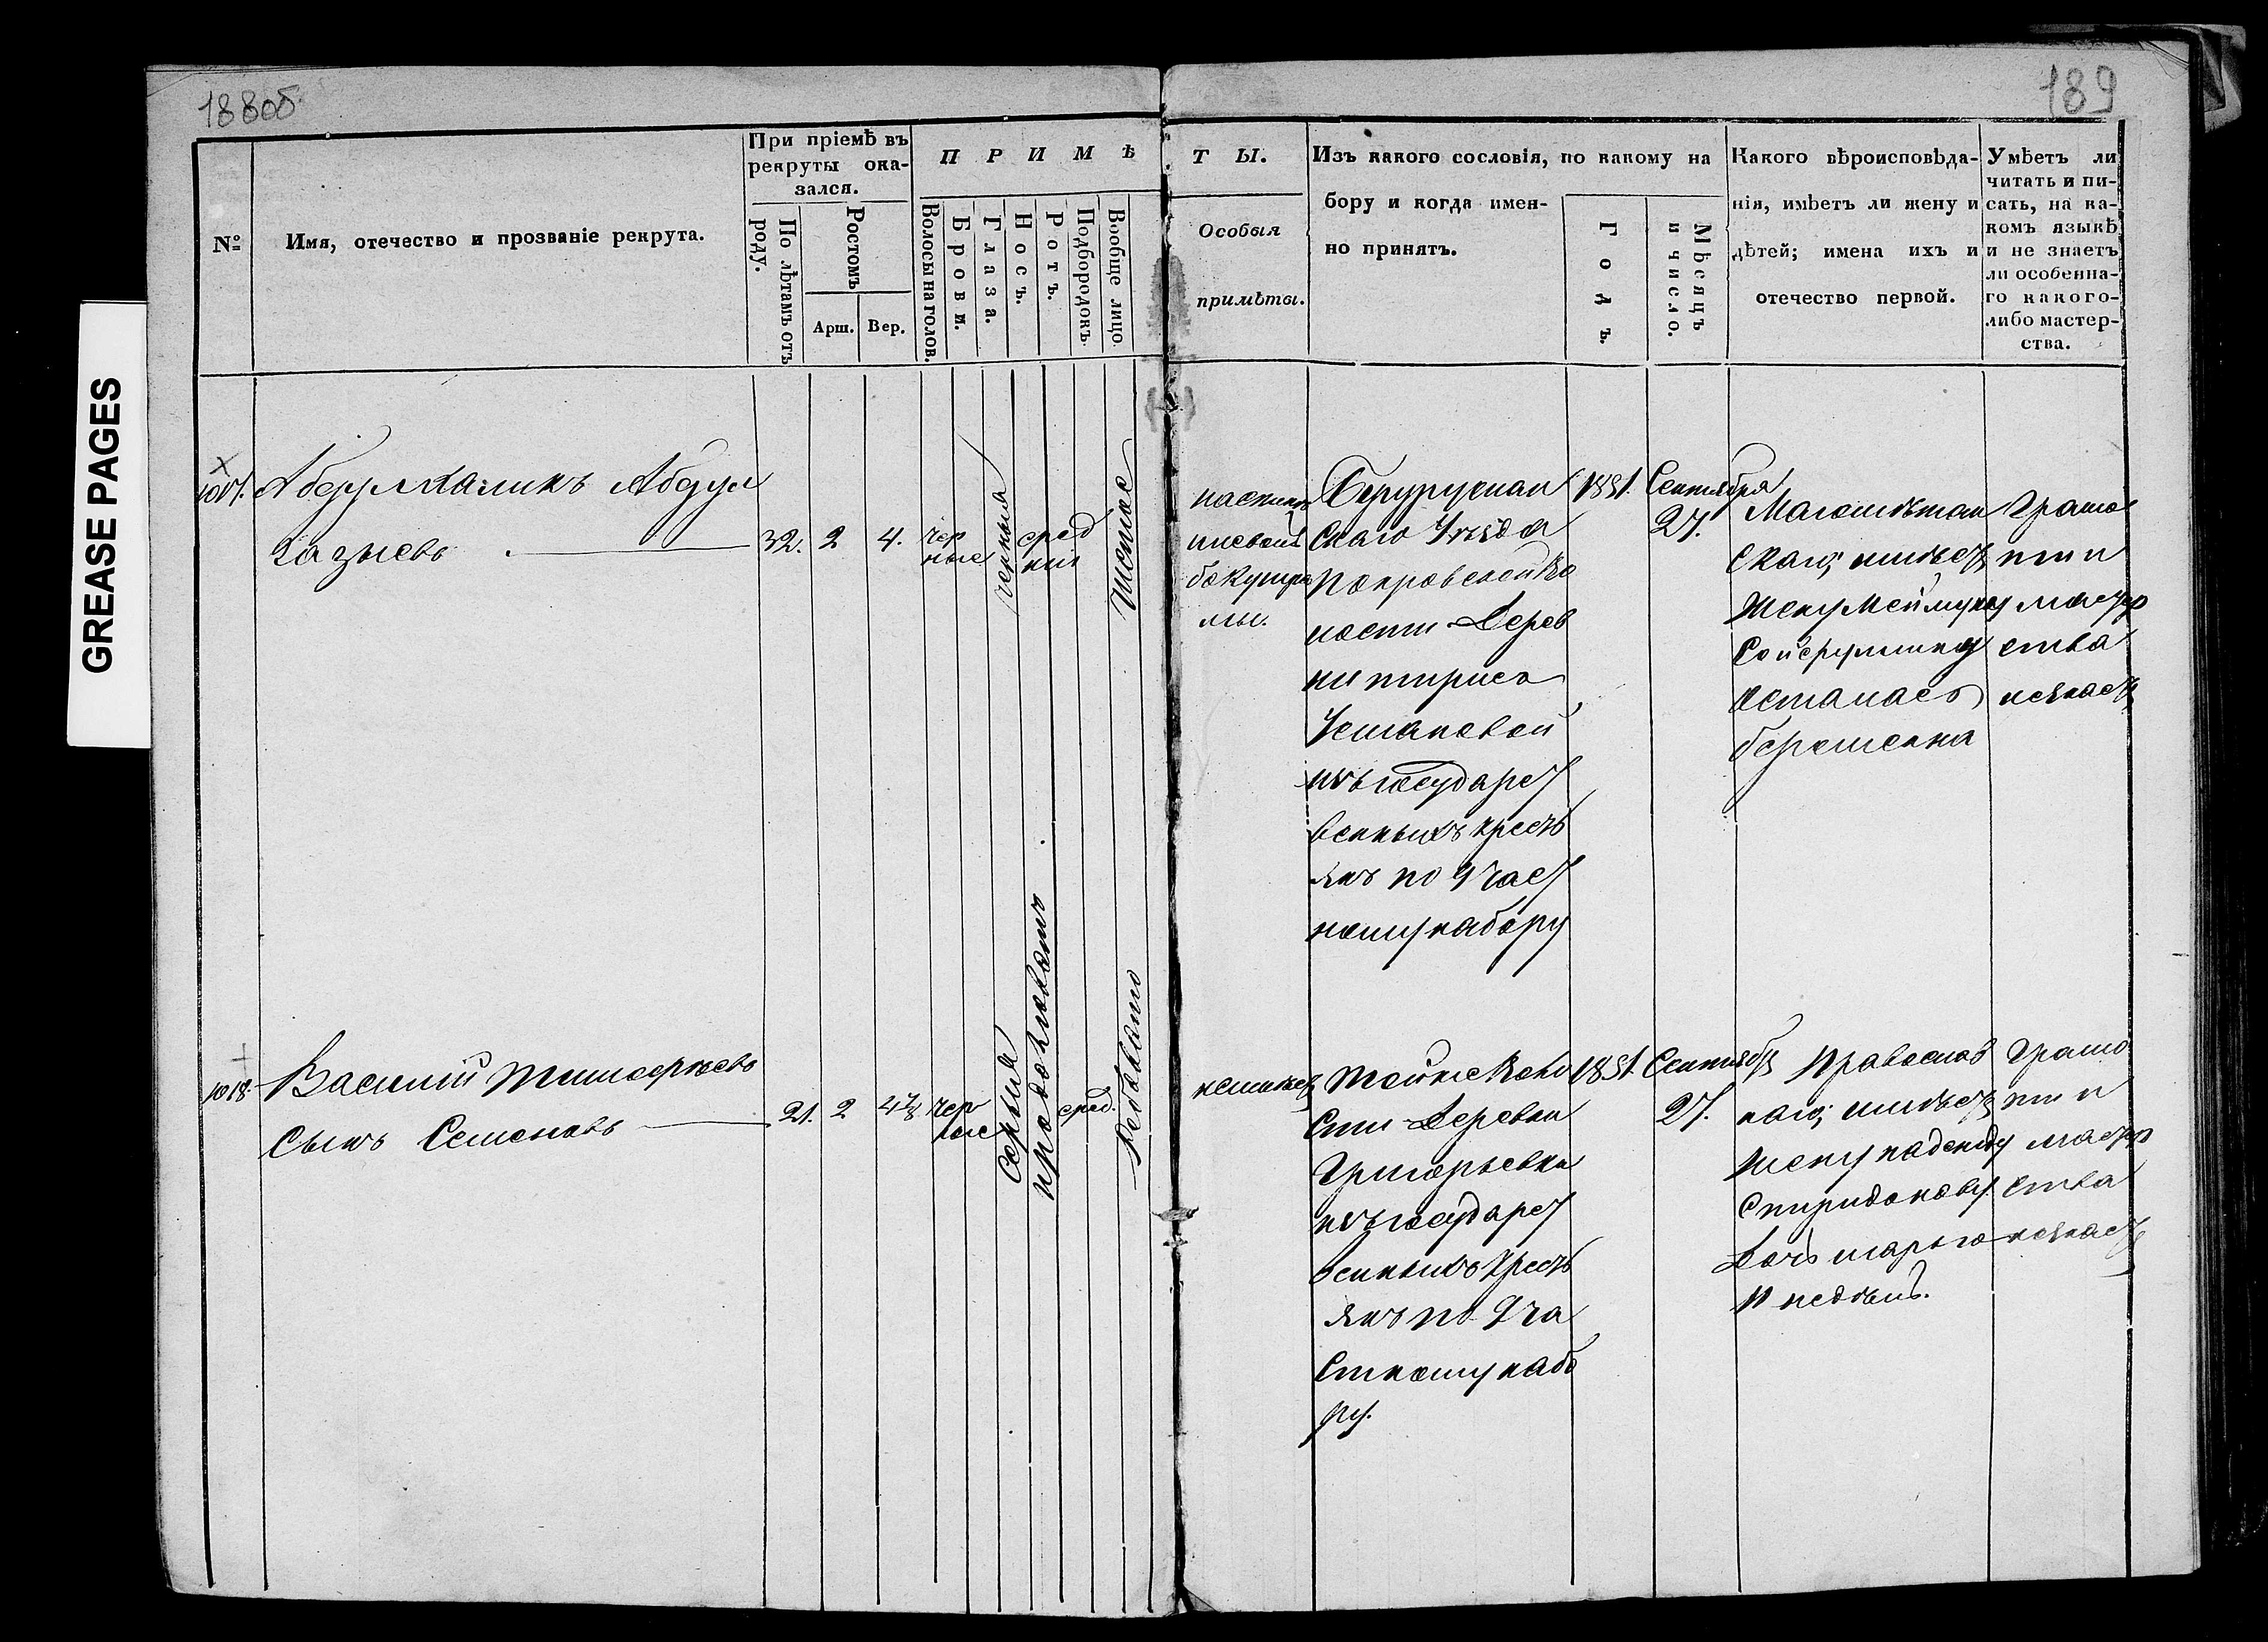 188об
189
GREASE PAGES
№
Имя, отечество и прозваніе рекрута.
При пріемѣ въ
рекруты ока-
зался.
По лѣтамъ отъ
роду.
Ростомъ
Арш. Вер.
ПРИМѢ
Волосы на голов.
Брови.
Глаза.
Носъ.
Ротъ.
Подбородокъ.
Вообще лицо.
ТЫ.
Особыя
примѣты.
Изъ какого сословія, по какому на
бору и когда имен-
но принятъ.
Годъ.
Мѣсяцъ
и число.
Какого вѣроисповѣда-
нія, имѣетъ ли жену и
дѣтей; имена ихъ и
отечество первой.
Умѣетъ ли
читать и пи-
сать, на ка-
комъ языкѣ
и не знаетъ
ли особенна-
го какого-
либо мастер-
ства.
Абдул
газыевъ
32. 2 4. чер
ные
сред
ніи
Скаго Уѣзда
Покровской Во
лости Дерев
ни
изъ государст
венныхъ кресть
янъ по 9 част
ному набору
1851. Сентября
27.
Магометан
скаго, имѣетъ
жену
осталась
беременна
Грамо
ти и
мастер
ства
незнаетъ
1018.
Василій Тимофѣевъ
сынъ Семеновъ
21. 2 4⅞ чер
ные
Серыя
продолговатъ
сред.
Рябовато
неимѣетъ
Волo
сти Деревни
Григорьевки
изъ государст
венныхъ кресть
янъ по 9 ча
стному набо
ру.
1851. Сентября
27.
Православ
наго, имѣетъ
жену надежду
Спиридонову
дочь марью
Грамо
ти и
мастер
ства
незнаетъ